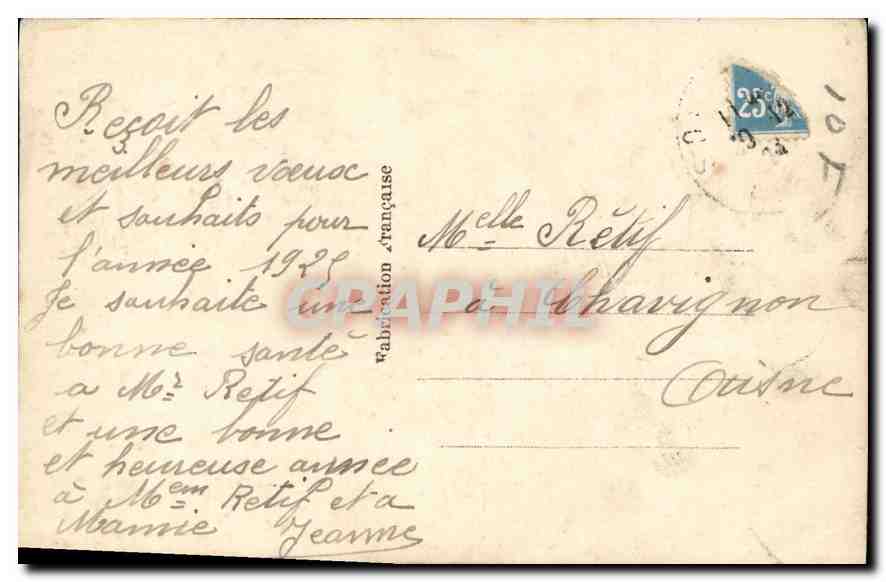 Reçoit les
meilleurs vœux
et souhaits pour
l'année 1925
Je souhaite une
bonne santé
a Mr Retif
et une bonne
et heureuse annee
à Mem Retif et a
Mamie Jeanne
Fabrication Française
25c
Melle Rétif
à Chavignon
Aisne
CPAPHIL